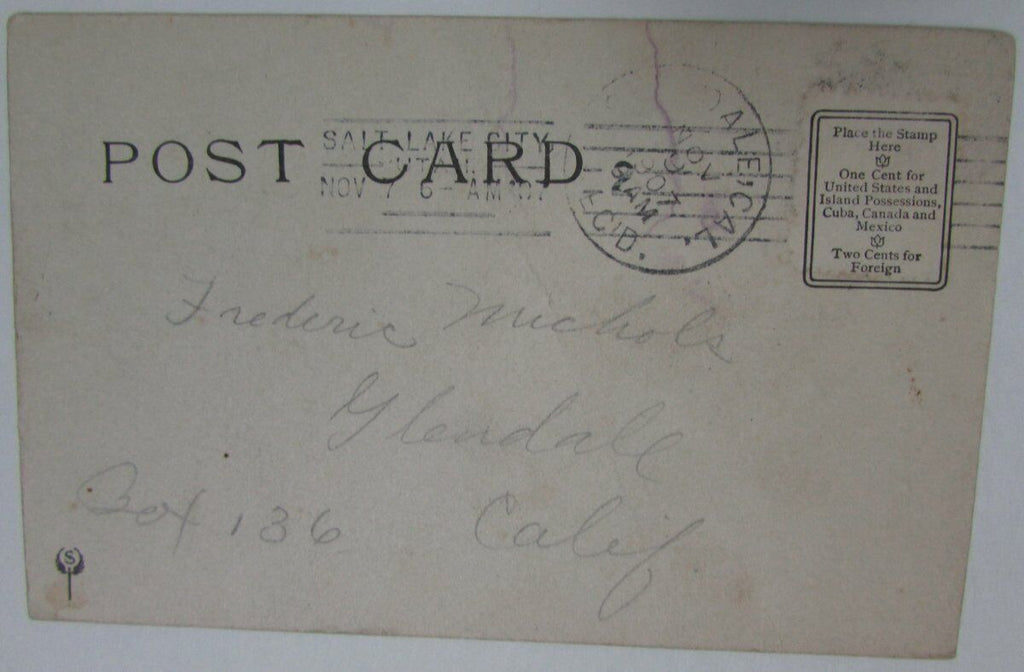 POST CARD
SALT LAKE CITY
UTAH
NOV 7 6 - AM 07
ALE, CAL.
NOV
9
AM
07
REC'D.
Place the Stamp
Here
One Cent for
United States and
Island Possessions,
Cuba, Canada and
Mexico
Two Cents for
Foreign
Frederic Nichols
Glendale
Box 136 Calif
S